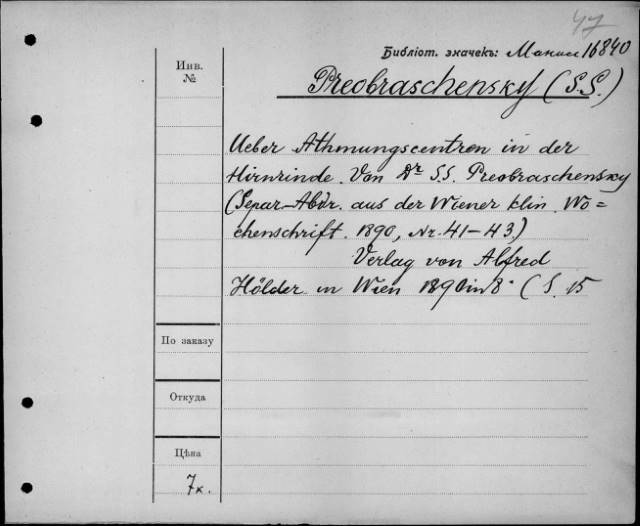 47
Библіот. значекъ: Манасс 16840
Инв.
№
Preobraschensky (S.S.)
Ueber Athmungscentren in der
Hirnrinde. Von Dr S.S. Preobraschensky
(Separ-Abdr. aus der Wiener klin. Wo=
chenschrift. 1890, Nr. 41-43.)
Verlag von Alfred
Hölder in Wien 1890 in 8° (S. 15
По заказу
Откуда
Цѣна
7к.